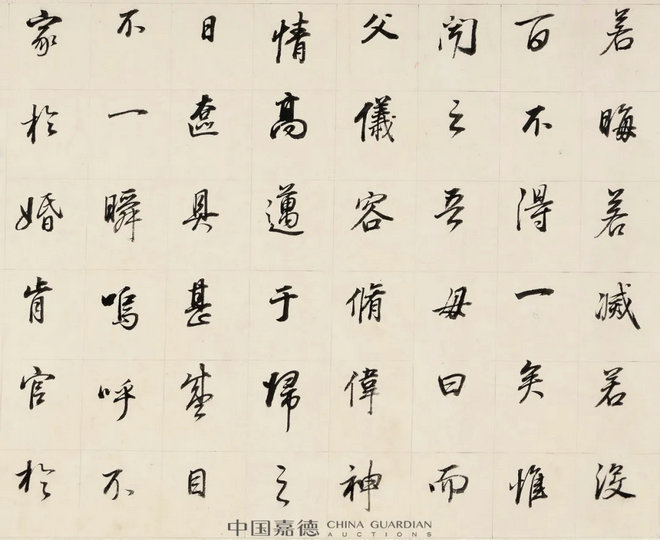 若晦若滅若没
百不得一矣惟
聞之吾母曰而
父儀容脩偉神
情高邁于歸之
日奩具甚盛目
不一瞬嗚呼不
家於婚肯官於
中国嘉德 CHINA GUARDIAN AUCTIONS